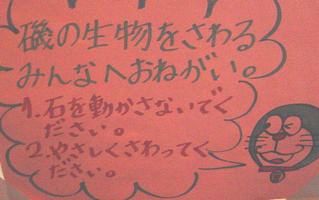 磯の生物をさわる
みんなへおねがい。
1.石を動かさないでく
ださい。
2.やさしくさわってく
ださい。